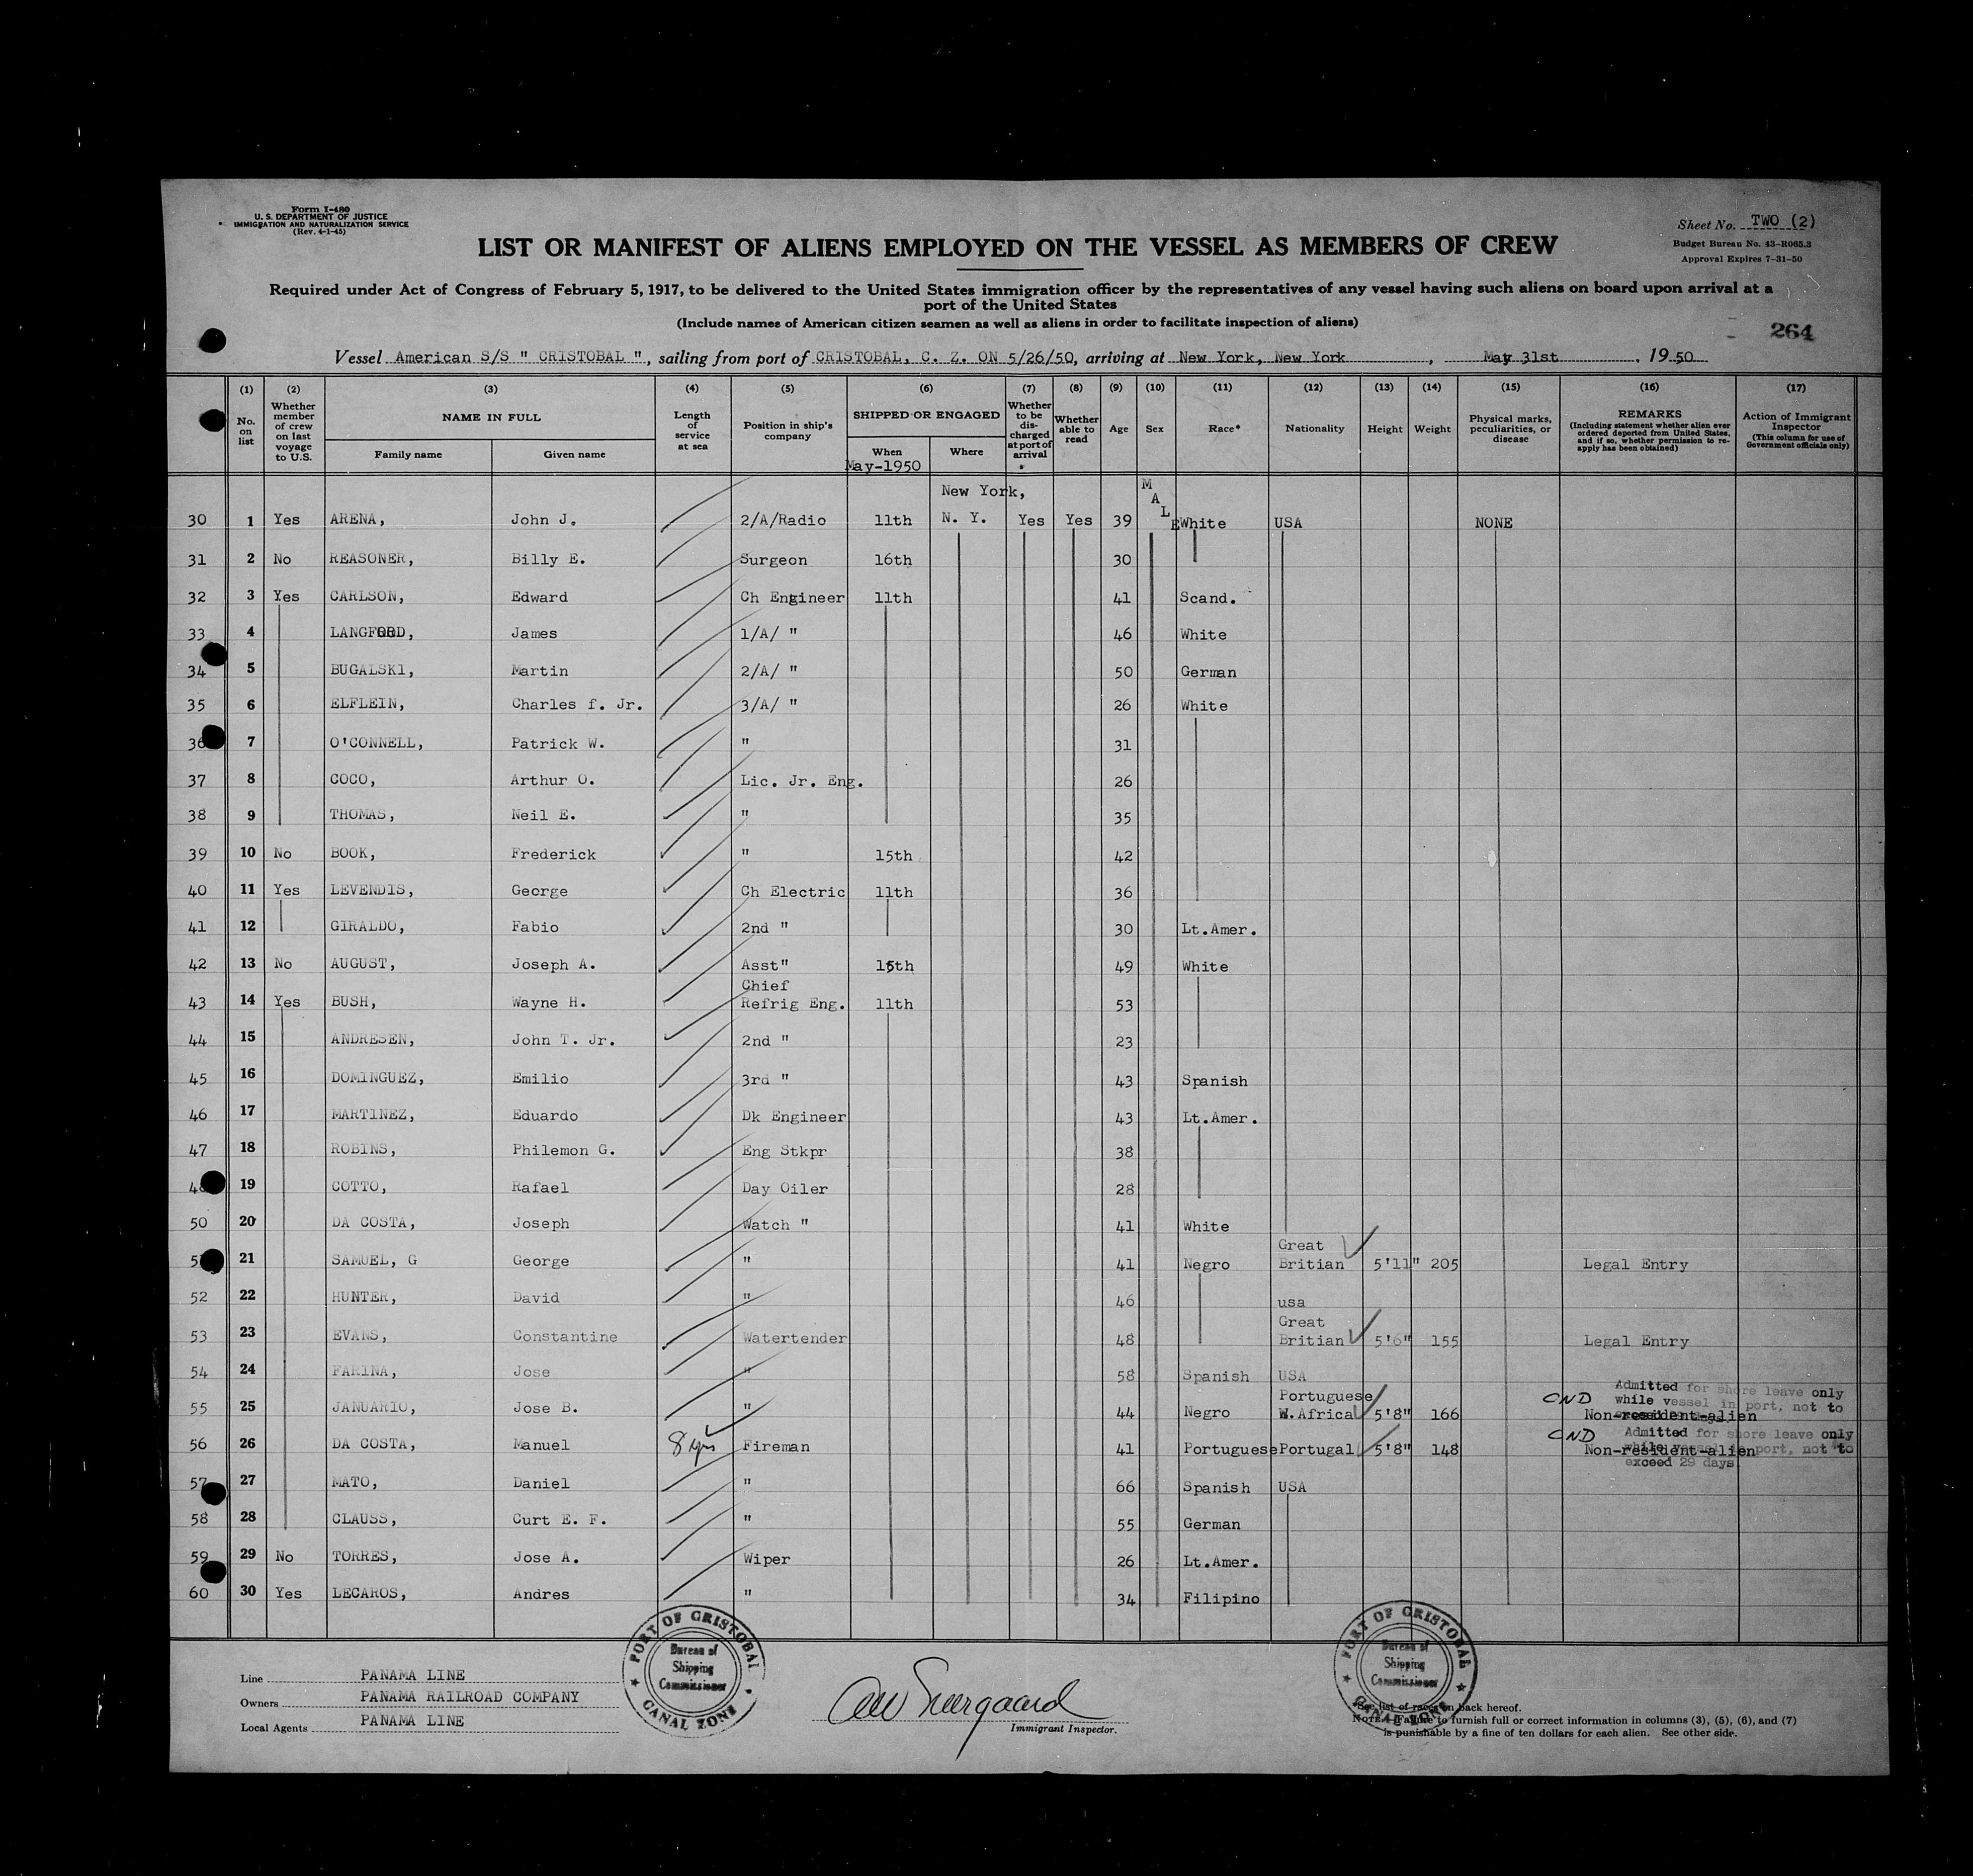 Form I-480
U. S. DEPARTMENT OF JUSTICE
IMMIGRATION AND NATURALIZATION SERVICE
(Rev. 4-1-45)
Sheet No. TWO (2)
Budget Bureau No. 43-R065.3
Approval Expires 7-31-50
LIST OR MANIFEST OF ALIENS EMPLOYED ON THE VESSEL AS MEMBERS OF CREW
Required under Act of Congress of February 5, 1917, to be delivered to the United States immigration officer by the representatives of any vessel having such aliens on board upon arrival at a
port of the United States
(Include names of American citizen seamen as well as aliens in order to facilitate inspection of aliens)
264
Vessel American S/S " CRISTOBAL ", sailing from port of CRISTOBAL, C. Z. ON 5/26/50, arriving at New York, New York, May 31st, 1950
(1) (2) (3) (4) (5) (6) (7) (8) (9) (10) (11) (12) (13) (14) (15) (16) (17)
No. on list
Whether member of crew on last voyage to U.S.
NAME IN FULL
Family name
Given name
Length of service at sea
Position in ship's company
SHIPPED OR ENGAGED
When
May-1950
Where
Whether to be discharged at port of arrival
Whether able to read
Age
Sex
Race*
Nationality
Height
Weight
Physical marks, peculiarities, or disease
REMARKS
(Including statement whether alien ever ordered deported from United States, and if so, whether permission to reapply has been obtained)
Action of Immigrant Inspector
(This column for use of Government officials only)
New York,
MALE
30 1 Yes ARENA, John J. 2/A/Radio 11th N. Y. Yes Yes 39 White USA NONE
31 2 No REASONER, Billy E. Surgeon 16th 30
32 3 Yes CARLSON, Edward Ch Engineer 11th 41 Scand.
33 4 LANGFORD, James 1/A/ " 46 White
34 5 BUGALSKI, Martin 2/A/ " 50 German
35 6 ELFLEIN, Charles f. Jr. 3/A/ " 26 White
36 7 O'CONNELL, Patrick W. " 31
37 8 COCO, Arthur O. Lic. Jr. Eng. 26
38 9 THOMAS, Neil E. " 35
39 10 No BOOK, Frederick " 15th 42
40 11 Yes LEVENDIS, George Ch Electric 11th 36
41 12 GIRALDO, Fabio 2nd " 30 Lt.Amer.
42 13 No AUGUST, Joseph A. Asst" 15th 49 White
Chief
43 14 Yes BUSH, Wayne H. Refrig Eng. 11th 53
44 15 ANDRESEN, John T. Jr. 2nd " 23
45 16 DOMINGUEZ, Emilio 3rd " 43 Spanish
46 17 MARTINEZ, Eduardo Dk Engineer 43 Lt.Amer.
47 18 ROBINS, Philemon G. Eng Stkpr 38
19 COTTO, Rafael Day Oiler 28
50 20 DA COSTA, Joseph Watch " 41 White
Great
21 SAMUEL, G George " 41 Negro Britian 5'11" 205 Legal Entry
52 22 HUNTER, David " 46 usa
Great
53 23 EVANS, Constantine Watertender 48 Britian 5'6" 155 Legal Entry
54 24 FARINA, Jose " 58 Spanish USA
Portuguese CND Admitted for shore leave only
while vessel in port, not to
55 25 JANUARIO, Jose B. " 44 Negro W.Africa 5'8" 166 Non-resident-alien
CND Admitted for shore leave only
56 26 DA COSTA, Manuel 8 yrs Fireman 41 Portuguese Portugal 5'8" 148 Non-resident-alien
while vessel in port, not to
exceed 29 days
57 27 MATO, Daniel " 66 Spanish USA
58 28 CLAUSS, Curt E. F. " 55 German
59 29 No TORRES, Jose A. Wiper 26 Lt.Amer.
60 30 Yes LECAROS, Andres " 34 Filipino
Line PANAMA LINE
Owners PANAMA RAILROAD COMPANY
Local Agents PANAMA LINE
PORT OF CRISTOBAL
Bureau of
Shipping
Commissioner
CANAL ZONE
Immigrant Inspector.
PORT OF CRISTOBAL
Bureau of
Shipping
Commissioner
CANAL ZONE
*See list of races on back hereof.
NOTE.—Failure to furnish full or correct information in columns (3), (5), (6), and (7)
is punishable by a fine of ten dollars for each alien. See other side.